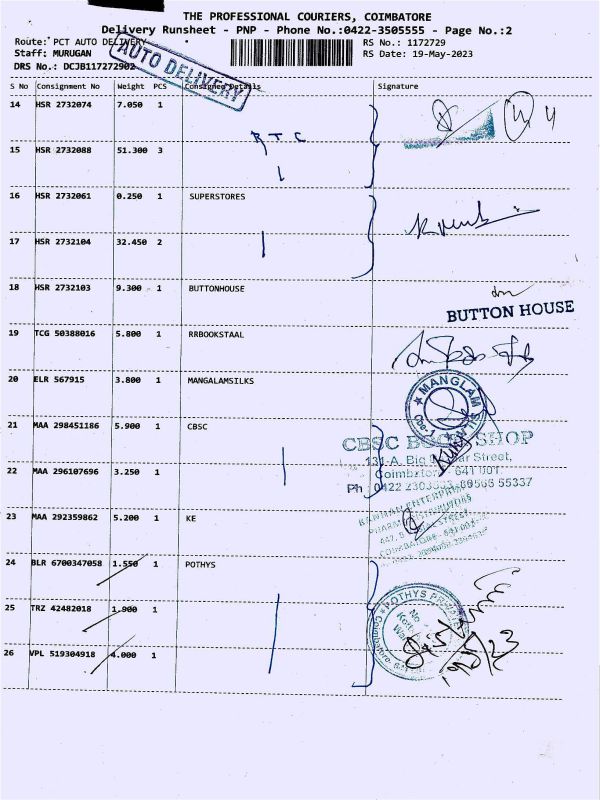 THE PROFESSIONAL COURIERS, COIMBATORE
Delivery Runsheet - PNP - Phone No.:0422-3505555 - Page No.:2
Route: PCT AUTO DELIVERY RS No.: 1172729
Staff: MURUGAN RS Date: 19-May-2023
DRS No.: DCJB117272902
AUTO DELIVERY
S No Consignment No Weight PCS Consignee Details Signature
14 HSR 2732074 7.050 1
RTC
15 HSR 2732088 51.300 3
16 HSR 2732061 0.250 1 SUPERSTORES
17 HSR 2732104 32.450 2
18 HSR 2732103 9.300 1 BUTTONHOUSE
BUTTON HOUSE
19 TCG 50388016 5.800 1 RRBOOKSTAAL
20 ELR 567915 3.800 1 MANGALAMSILKS
MANGLAM
21 MAA 298451186 5.900 1 CBSC
CBSC BOOK SHOP
Street,
Coimbatore - 641 001
22 MAA 296107696 3.250 1
Ph : 0422 55337
23 MAA 292359862 5.200 1 KE
24 BLR 6700347058 1.550 1 POTHYS
POTHYS
25 TRZ 42482018 1.900 1
26 VPL 519304918 4.000 1